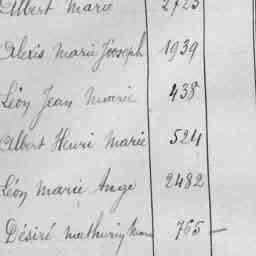 Albert Marie 2723
Alexis Marie Joseph 1939
Léon Jean Marie 438
Albert Henri Marie 524
Léon Marie Ange 2482
Désiré Mathurin 765